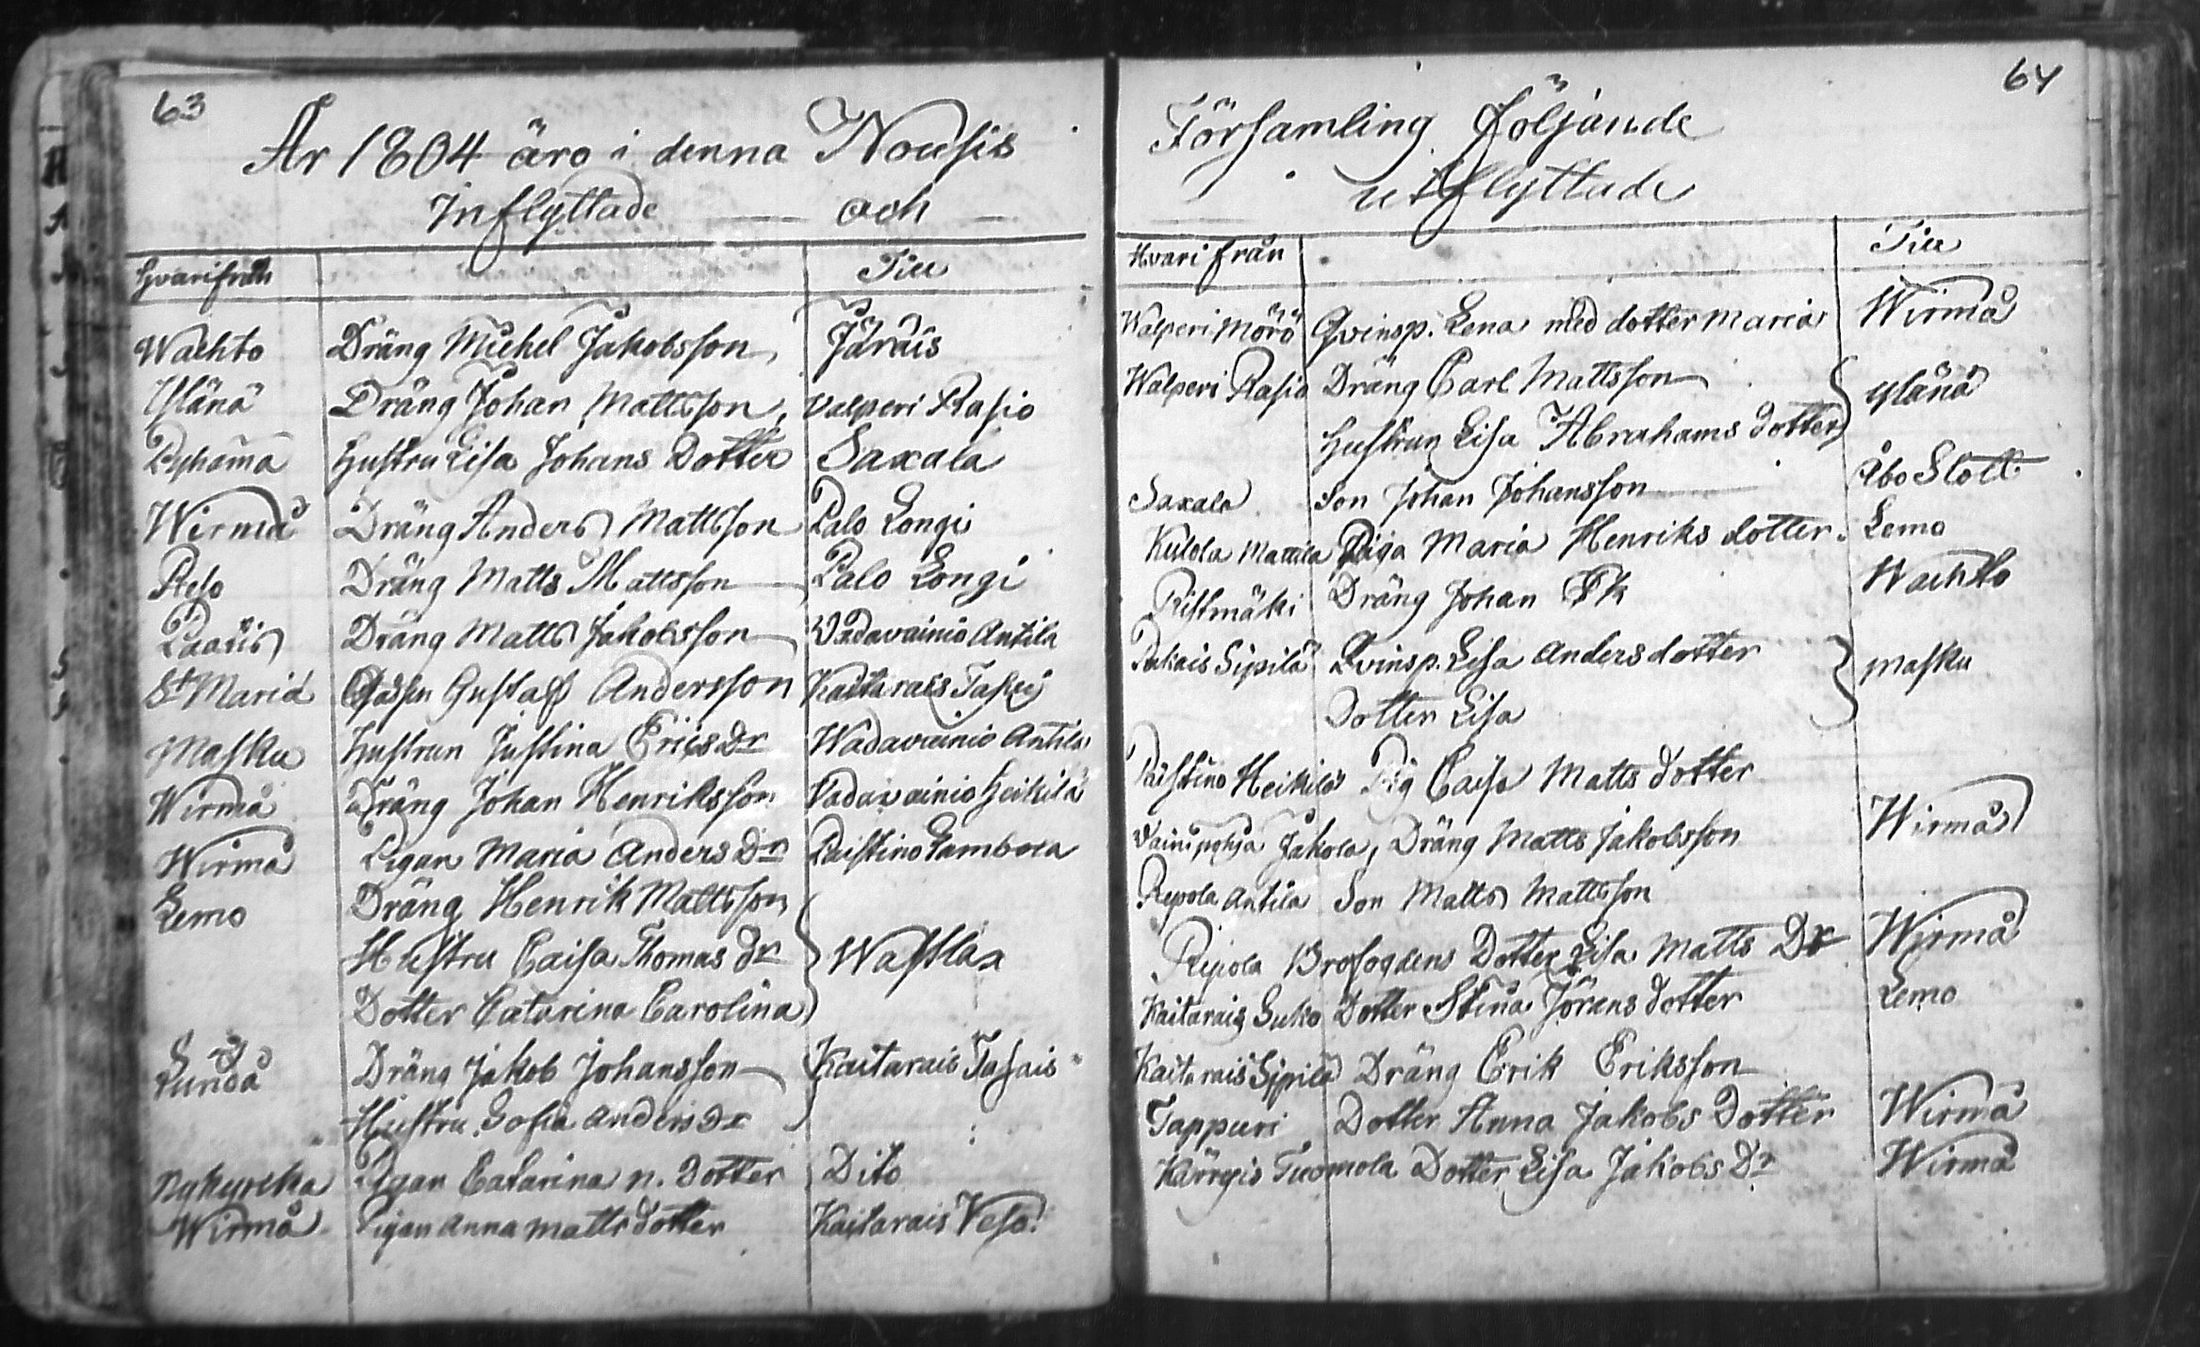 63
År 1804 äro i denna Nousis
Inflyttade och
Hvarifrån Till
Wachto Dräng Michel Jakobsson Järäis
Yläna Dräng Johan Mattsson Valperi Rasio
Pyhama Hustru Lisa Johans Dotter Saxala
Wirmå Dräng Anders Mattsson Palo Longi
Reso Dräng Matts Mattsson Palo Longi
Dräng Matts Jakobsson Wadavainio Antila
St Mariæ Gustaf Andersson Kaitarais
Masku Hustrun Justina Erics Dr Wadavainio Antila
Wirmå Dräng Johan Henriksson Vadavainio Heikilä
Wirmå Pigan Maria Anders Dr Paistino Lambola
Lemo Dräng Henrik Mattsson
Hustru Caisa Thomas Dr Waskla
Dotter Catarina Carolina
Lundå Dräng Jakob Johansson Kaitarais Tasais
Hustru Sofia Anders Dr
Nykyrcka Pigan Catarina n. Dotter Dito
Wirmå Pigan Anna Matts dotter Kaitarais Veso
64
Församling följande
utflyttade
Hvarifrån Till
Walperi Mörö Qvinsp. Lena med dotter Maria Wirmå
Walperi Rasio Dräng Carl Mattsson Ylänä
Hustrun Lisa Abrahams Dotter
Saxala Son Johan Johansson Åbo Slott
Kulola Mattila Piga Maria Henriks dotter Lemo
Ristmäki Dräng Johan Ek Wachto
Pukais Sipilä Qvinsp. Lisa Anders dotter Masku
Dotter Lisa
Paistino Heikilä Pig Caisa Matts Dotter
Vainiopohja Jakola, Dräng Matts Jakobsson Wirmå
Repola Antila Son Matts Mattsson
Repola Brofogdens Dotter Lisa Matts Dr Wirmå
Kaitarais Suko Dotter Stina Jörans dotter Lemo
Kaitarais Sipilä Dräng Erik Eriksson
Tappuri Dotter Anna Jakobs Dotter Wirmå
Kärrgis Tuomola Dotter Lisa Jakobs Dr Wirmå